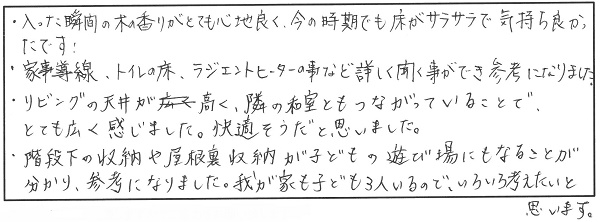 ・入った瞬間の木の香りがとても心地良く、今の時期でも床がサラサラで気持ち良かっ
たです!
・家事導線、トイレの床、ラジエントヒーターの事など詳しく聞く事ができ参考になりました。
・リビングの天井が高く、隣の和室ともつながっていることで、
とても広く感じました。快適そうだと思いました。
・階段下の収納や屋根裏収納が子どもの遊び場にもなることが
分かり、参考になりました。我が家も子ども3人いるので、いろいろ考えたいと
思います。